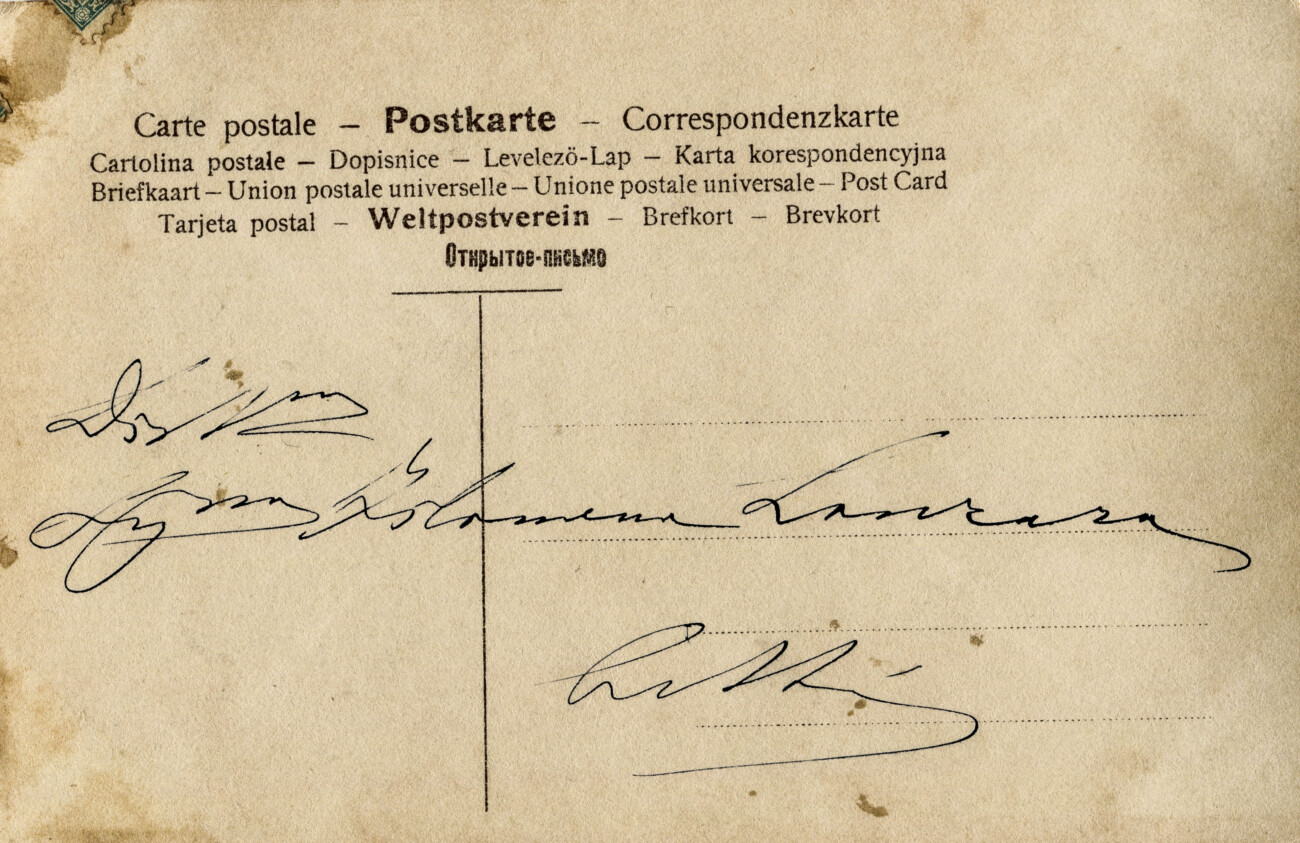 Carte postale – Postkarte – Correspondenzkarte
Cartolina postale – Dopisnice – Levelezö-Lap – Karta korespondencyjna
Briefkaart – Union postale universelle – Unione postale universale – Post Card
Tarjeta postal – Weltpostverein – Brefkort – Brevkort
Открытое-письмо
Filomena Lanzara
Città